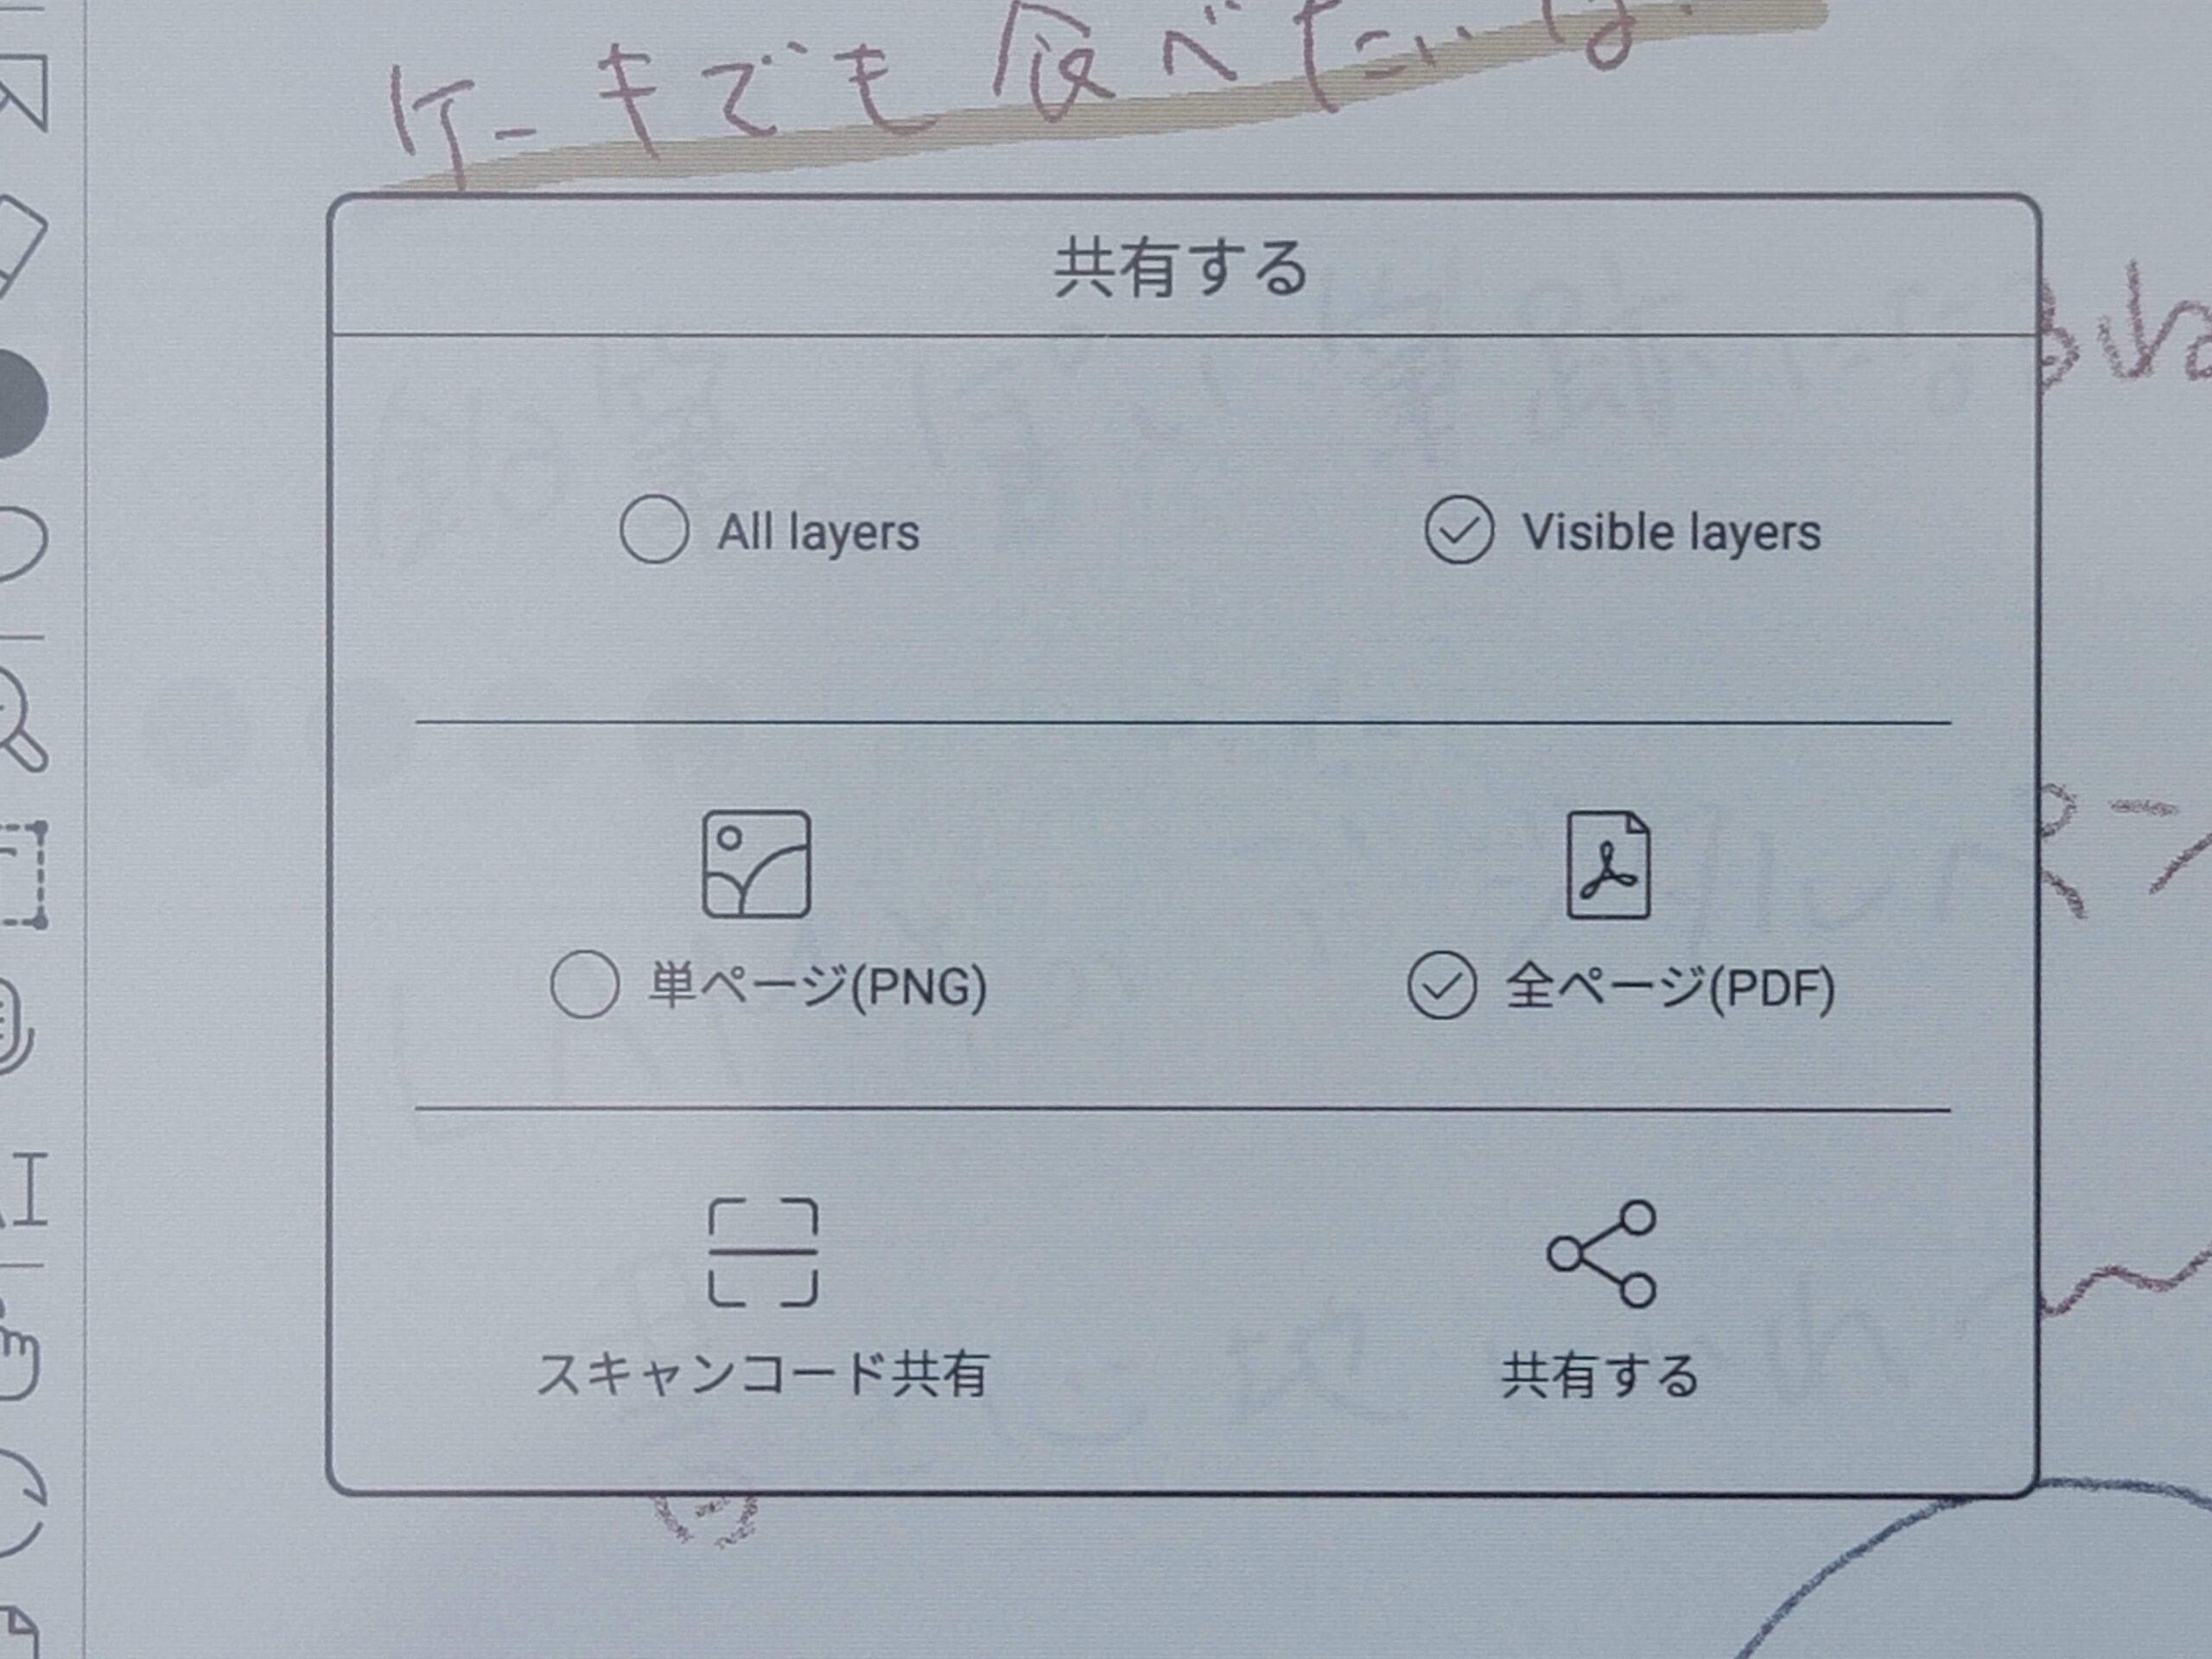 ケーキでも食べたいな
共有する
All layers
Visible layers
単ページ(PNG)
全ページ(PDF)
スキャンコード共有
共有する